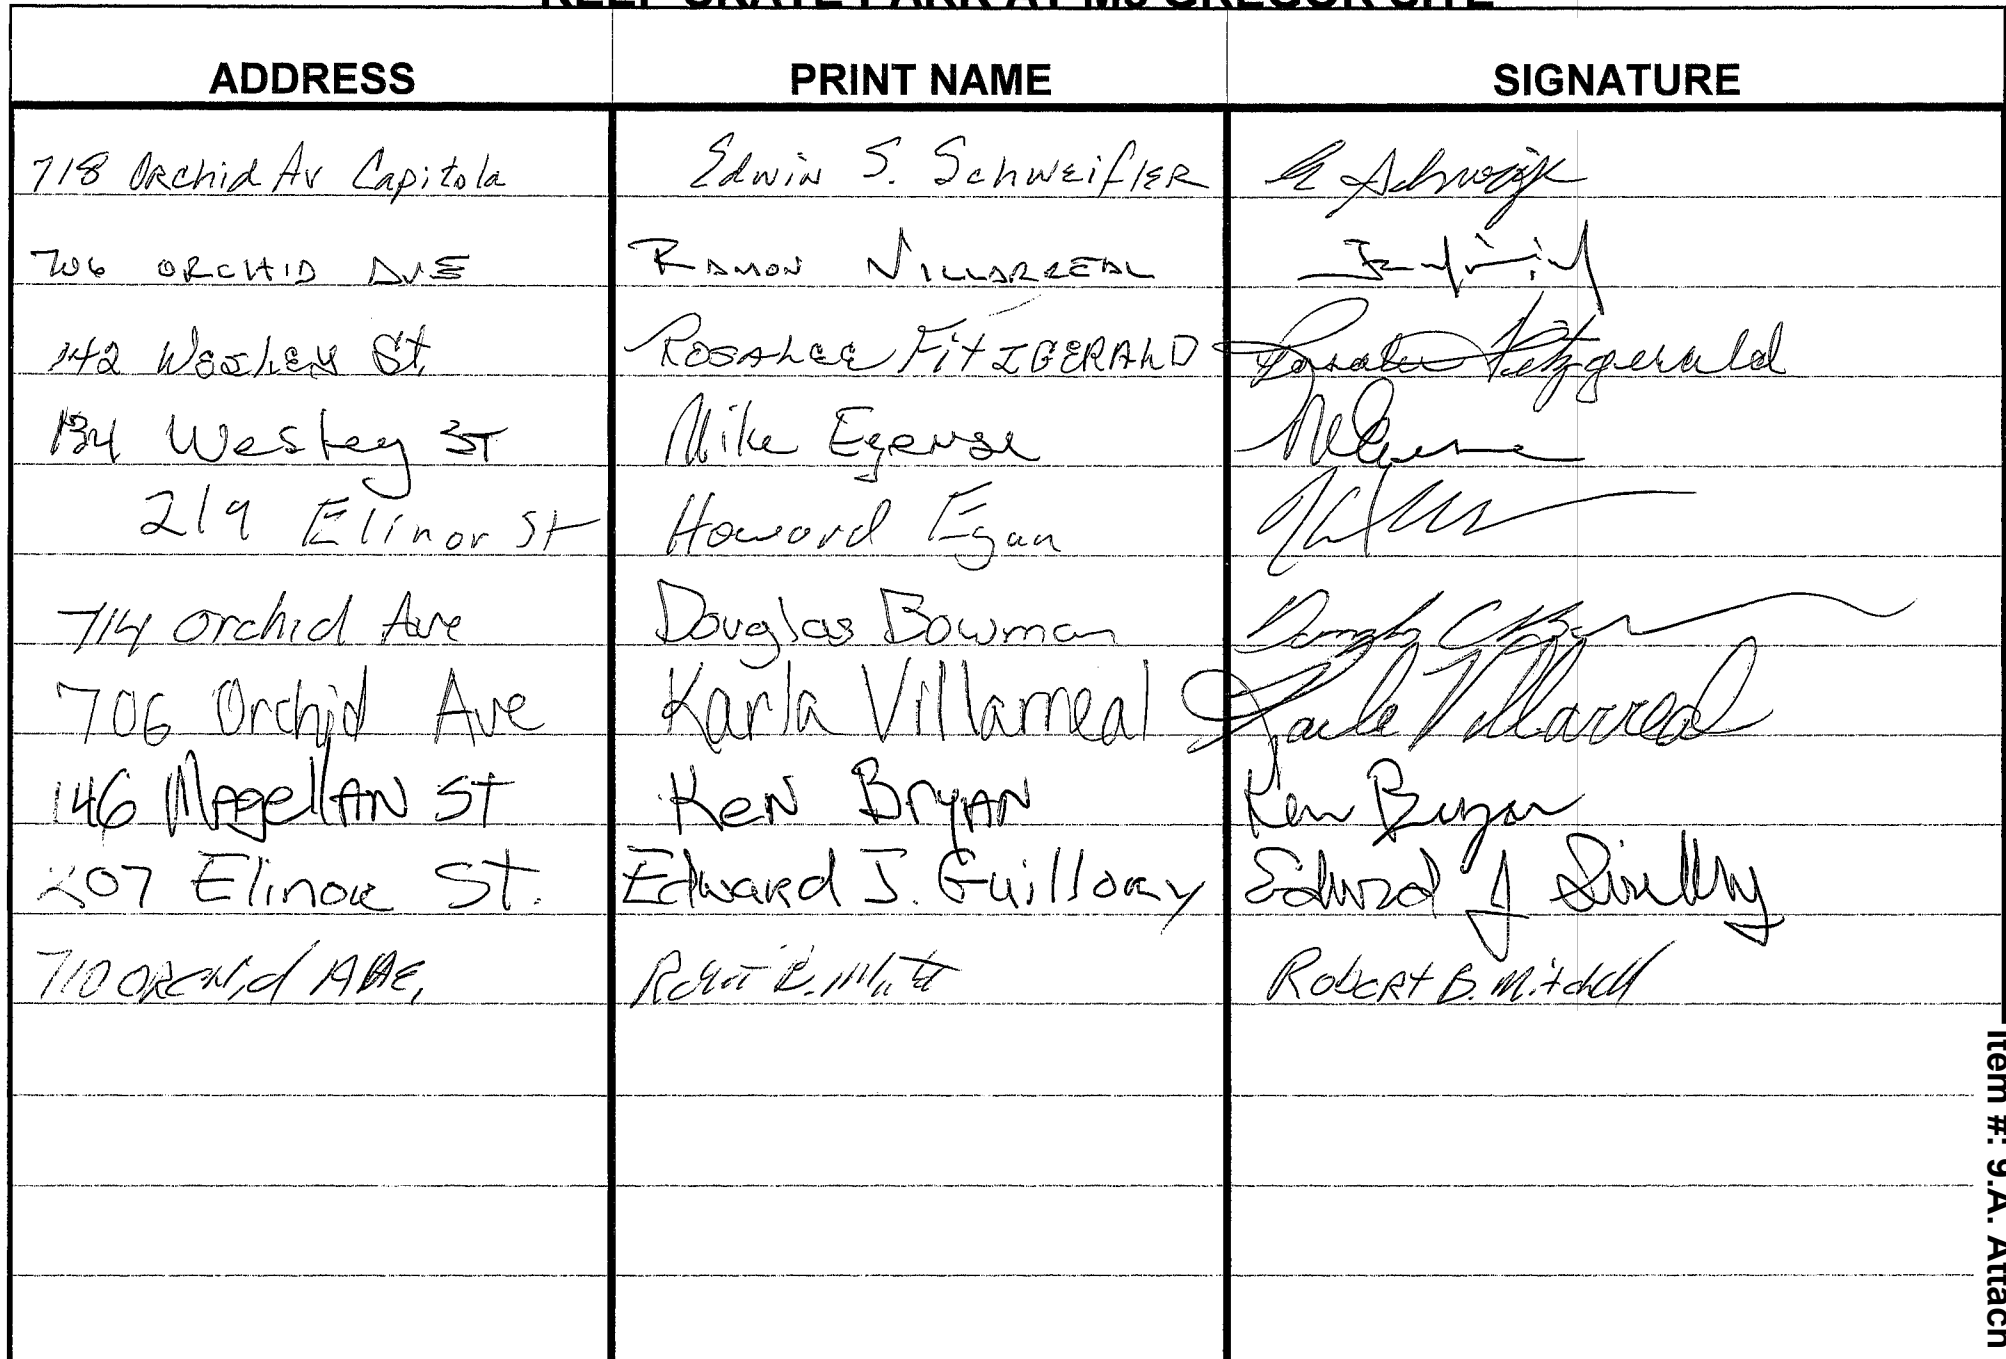 KEEP SKATE PARK AT MC GREGOR SITE
ADDRESS PRINT NAME SIGNATURE
718 Orchid Av Capitola Edwin S. Schweifler
706 ORCHID AVE RAMON VILLARREAL
142 Wesley St. ROSALEE FITZGERALD Rosalee Fitzgerald
134 Wesley ST Mike Egense
219 Elinor St Howard Egan
714 Orchid Ave Douglas Bowman
706 Orchid Ave Karla Villarreal Karla Villarreal
146 Magellan St Ken Bryan Ken Bryan
207 Elinor St. Edward J. Guillory Edward J Guillory
710 ORCHid AVE. Robert B. Mitchell
Item #: 9.A. Attach